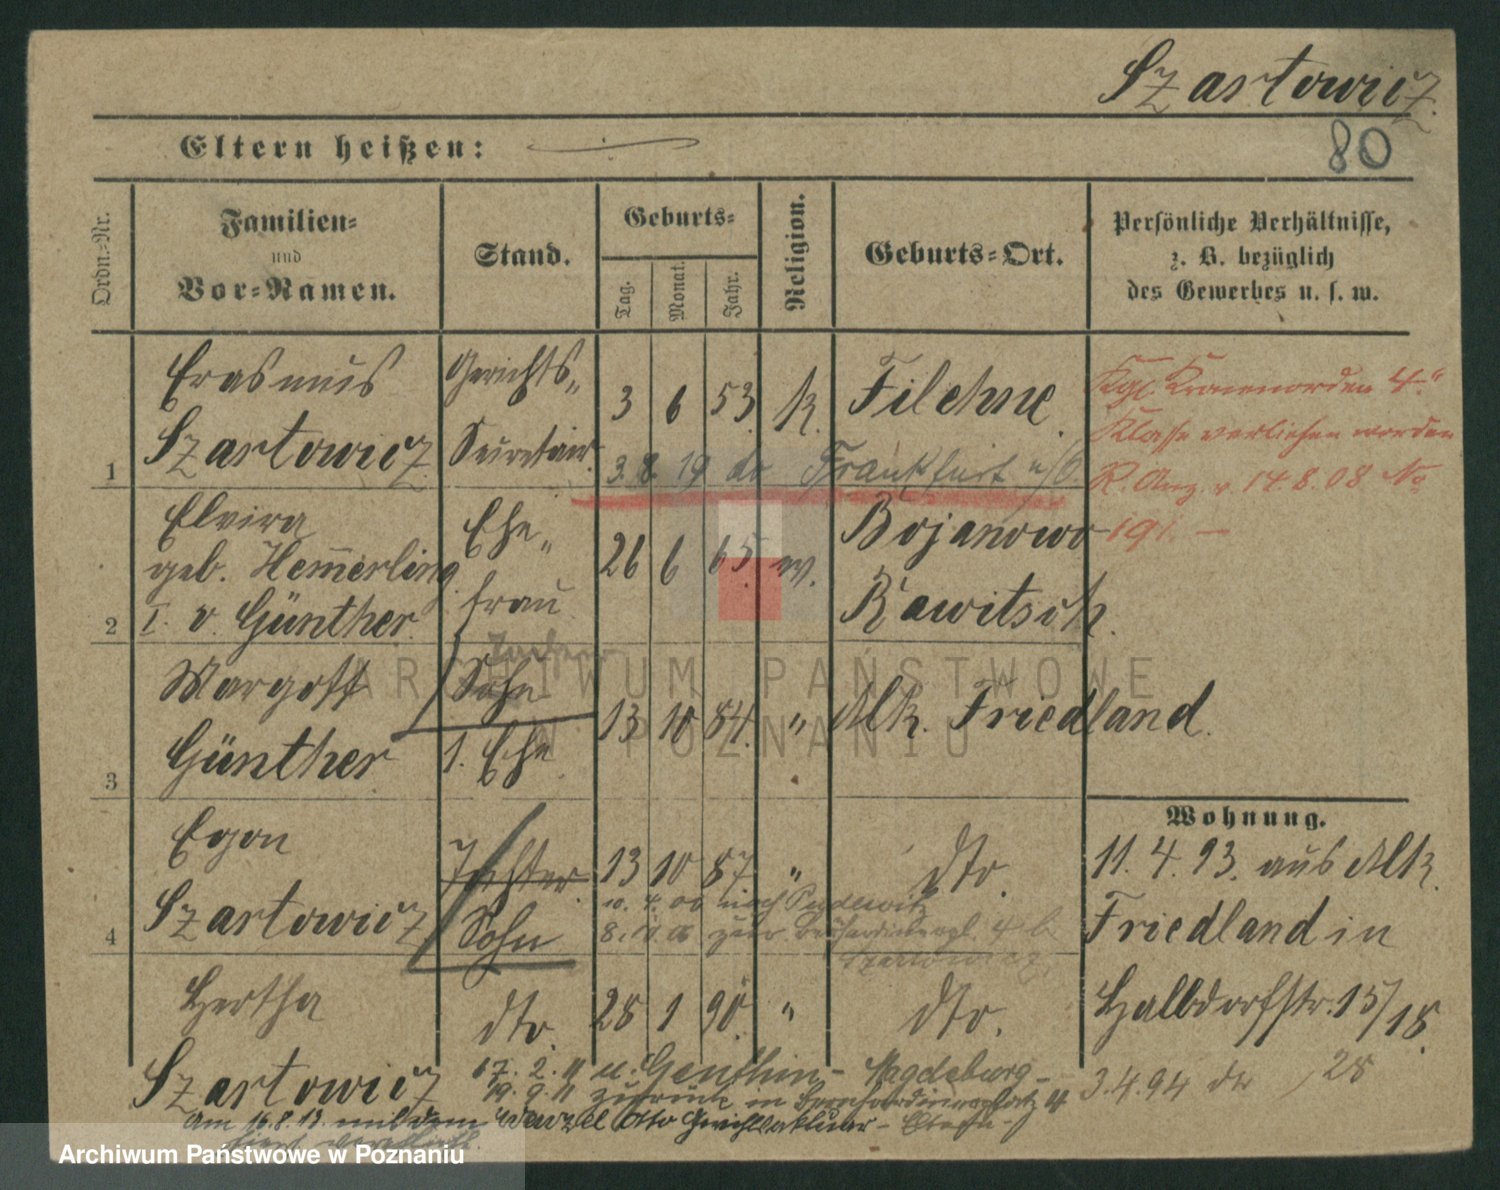 Szartowicz.
80
Eltern heißen:
Ordn.-Nr.
Familien-
und
Vor-Namen.
Stand.
Geburts-
Tag.
Monat.
Jahr.
Religion.
Geburts-Ort.
Persönliche Verhältnisse,
z. B. bezüglich
des Gewerbes u. s. w.
1
Erasmus
Szartowicz
Gerichts-
Secretair.
3 6 53. k. Filehne.
3. 8. 19 do Frankfurt a/O.
Kgl. Kronenorden 4.
Klasse verliehen worden
R. Anz. v. 14 8. 08 No
191. —
2
Elvira
geb. Hem̅erling
I. v. Günther.
Ehe-
frau
26 6 65. ev.
Bojanowo
Rawitsch.
3
Margott
Günther
Sohn
1. Ehe
13 10 84. " Mk. Friedland.
4
Egon
Szartowicz
Tochter.
Sohn
13 10 87. " dto.
10. 4. 06 nach Pudewitz
8. 10. 06 zur.
Szartowicz.
Hertha
Szartowicz
dto.
28 1 90. " dto.
17. 2. 11 n. Genthin - Magdeburg -
19. 9. 11 zurück in Bernhardinerplatz 4
Am 16.8.13. mit dem Otto
Wohnung.
11. 4. 93. aus Mk.
Friedland in
Halbdorfstr. 15/18.
3.4.94 do 28
ARCHIWUM PAŃSTWOWE
W POZNANIU
Archiwum Państwowe w Poznaniu